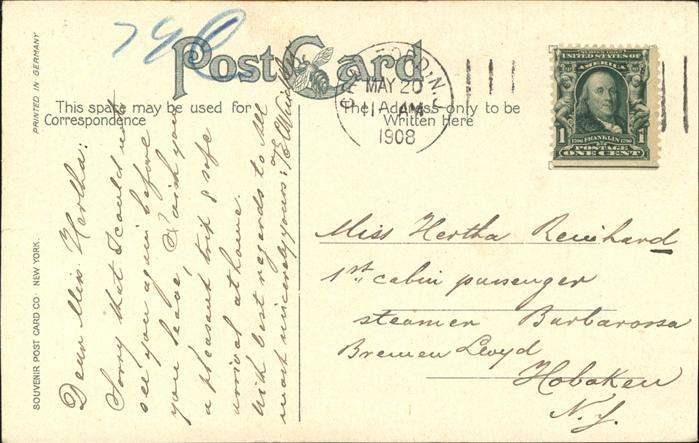 Post Card
This space may be used for
Correspondence
The Address only to be
Written Here
PRINTED IN GERMANY
SOUVENIR POST CARD CO NEW YORK.
MAY 20
11 AM
1908
UNITED STATES OF
AMERICA
1 FRANKLIN 1
POSTAGE
ONE CENT
Dear Miss Hertha:
Sorry that I could not
see you again before
you leave, I wish you
a pleasant trip & safe
arrival at home.
With best regards to all
most sincerely yours
Miss Hertha Reinhard
1st cabin passenger
steamer Barbarossa
Bremen Lloyd
Hoboken
N. J.